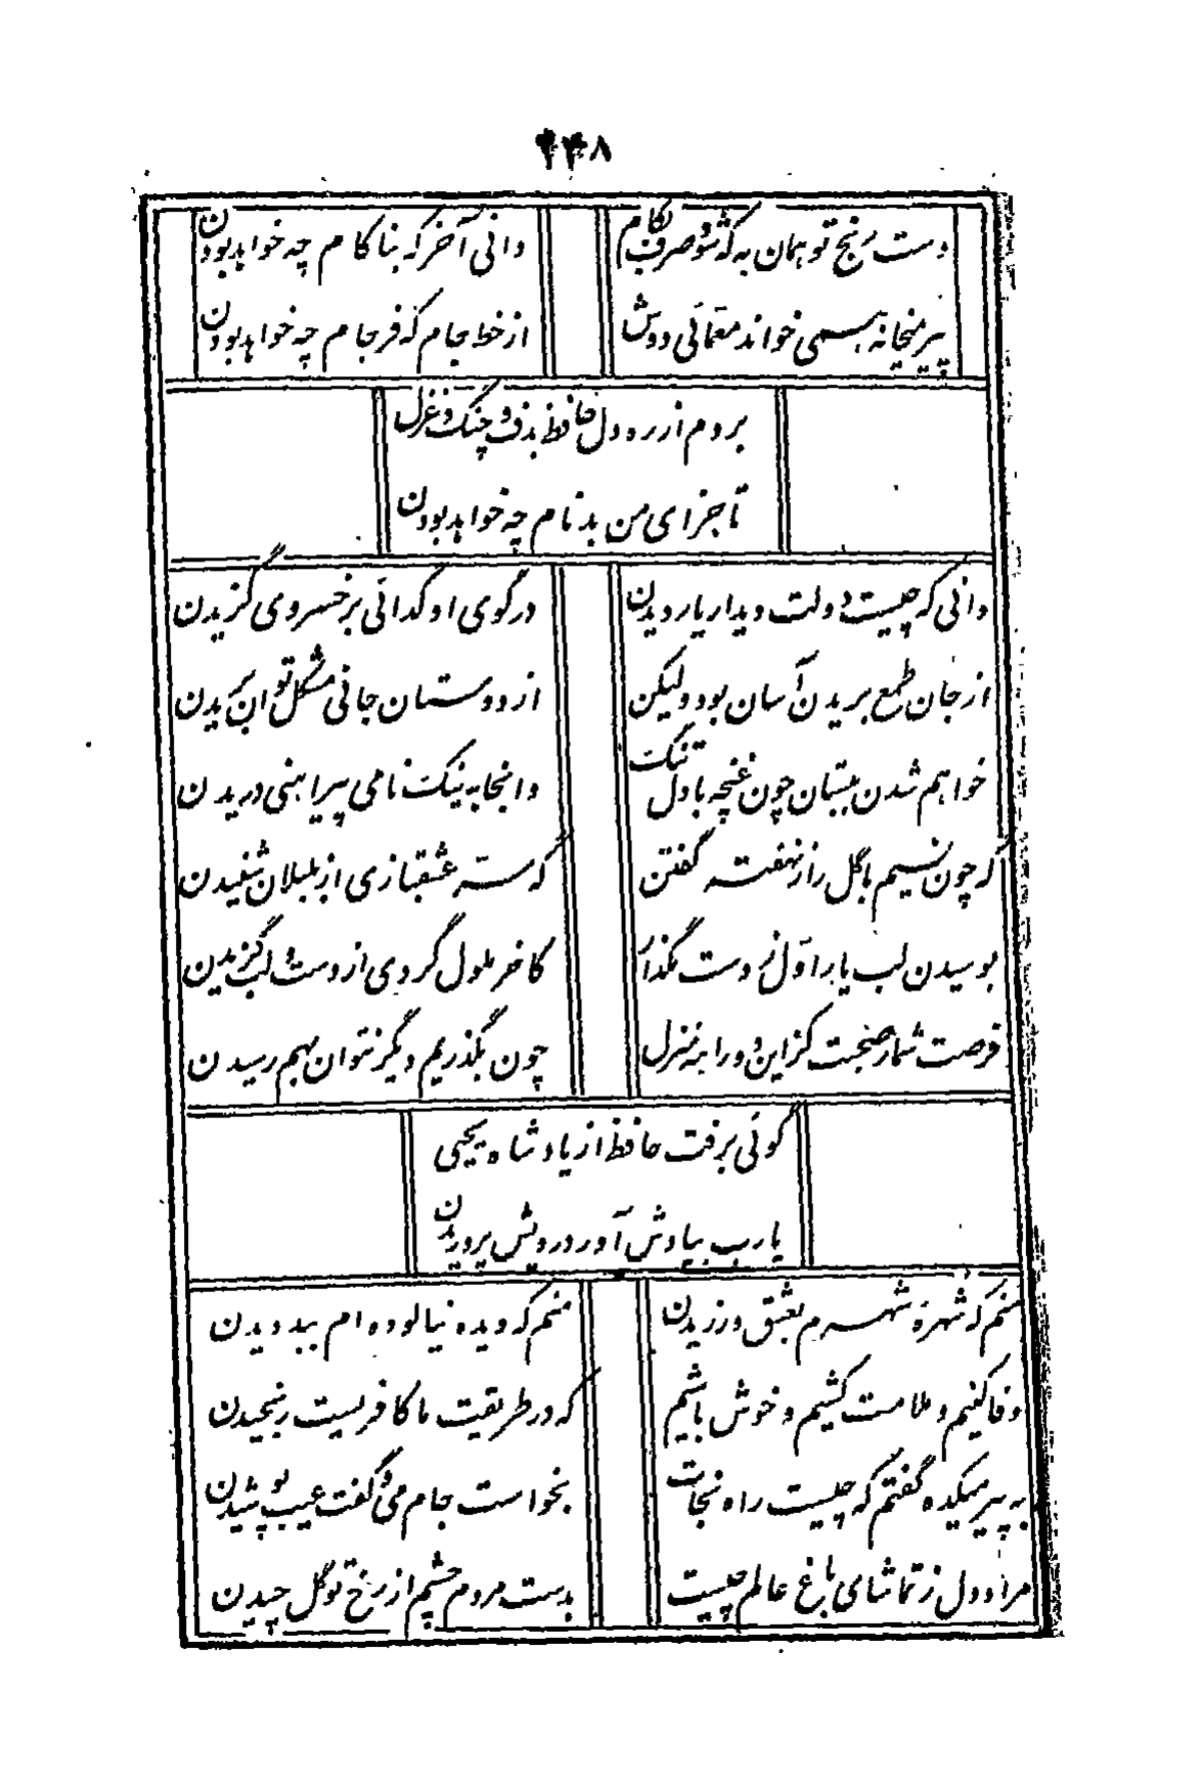 ۴۴۸
دست رنج تو همان به که شود صرف بکام
دانی آخر که بناکام چه خواهد بودن
پیر میخانه همی خواند معمائی دوش
از خط جام که فرجام چه خواهد بودن
بردم از ره دل حافظ بدف و چنگ و غزل
تا جزای من بدنام چه خواهد بودن
دانی که چیست دولت دیدار یار دیدن
در کوی او گدائی بر خسروی گزیدن
از جان طمع بریدن آسان بود ولیکن
از دوستان جانی مشکل توان بریدن
خواهم شدن ببستان چون غنچه با دل تنگ
وانجا به نیکنامی پیراهنی دریدن
گه چون نسیم با گل راز نهفته گفتن
که سته عشقبازی از بلبلان شنیدن
بوسیدن لب یار اول ز دست مگذار
کاخر ملول گردی از دست و لب گزیدن
فرصت شمار صحبت کز این دو راه منزل
چون بگذریم دیگر نتوان بهم رسیدن
گوئی برفت حافظ از یاد شاه یحیی
یارب بیادش آور درویش پروریدن
منم که شهره شهرم بعشق ورزیدن
منم که دیده نیالوده ام ببد دیدن
وفا کنیم و ملامت کشیم و خوش باشیم
که در طریقت ما کافریست رنجیدن
به پیر میکده گفتم که چیست راه نجات
بخواست جام می و گفت عیب پوشیدن
مراد دل ز تماشای باغ عالم چیست
بدست مردم چشم از رخ تو گل چیدن